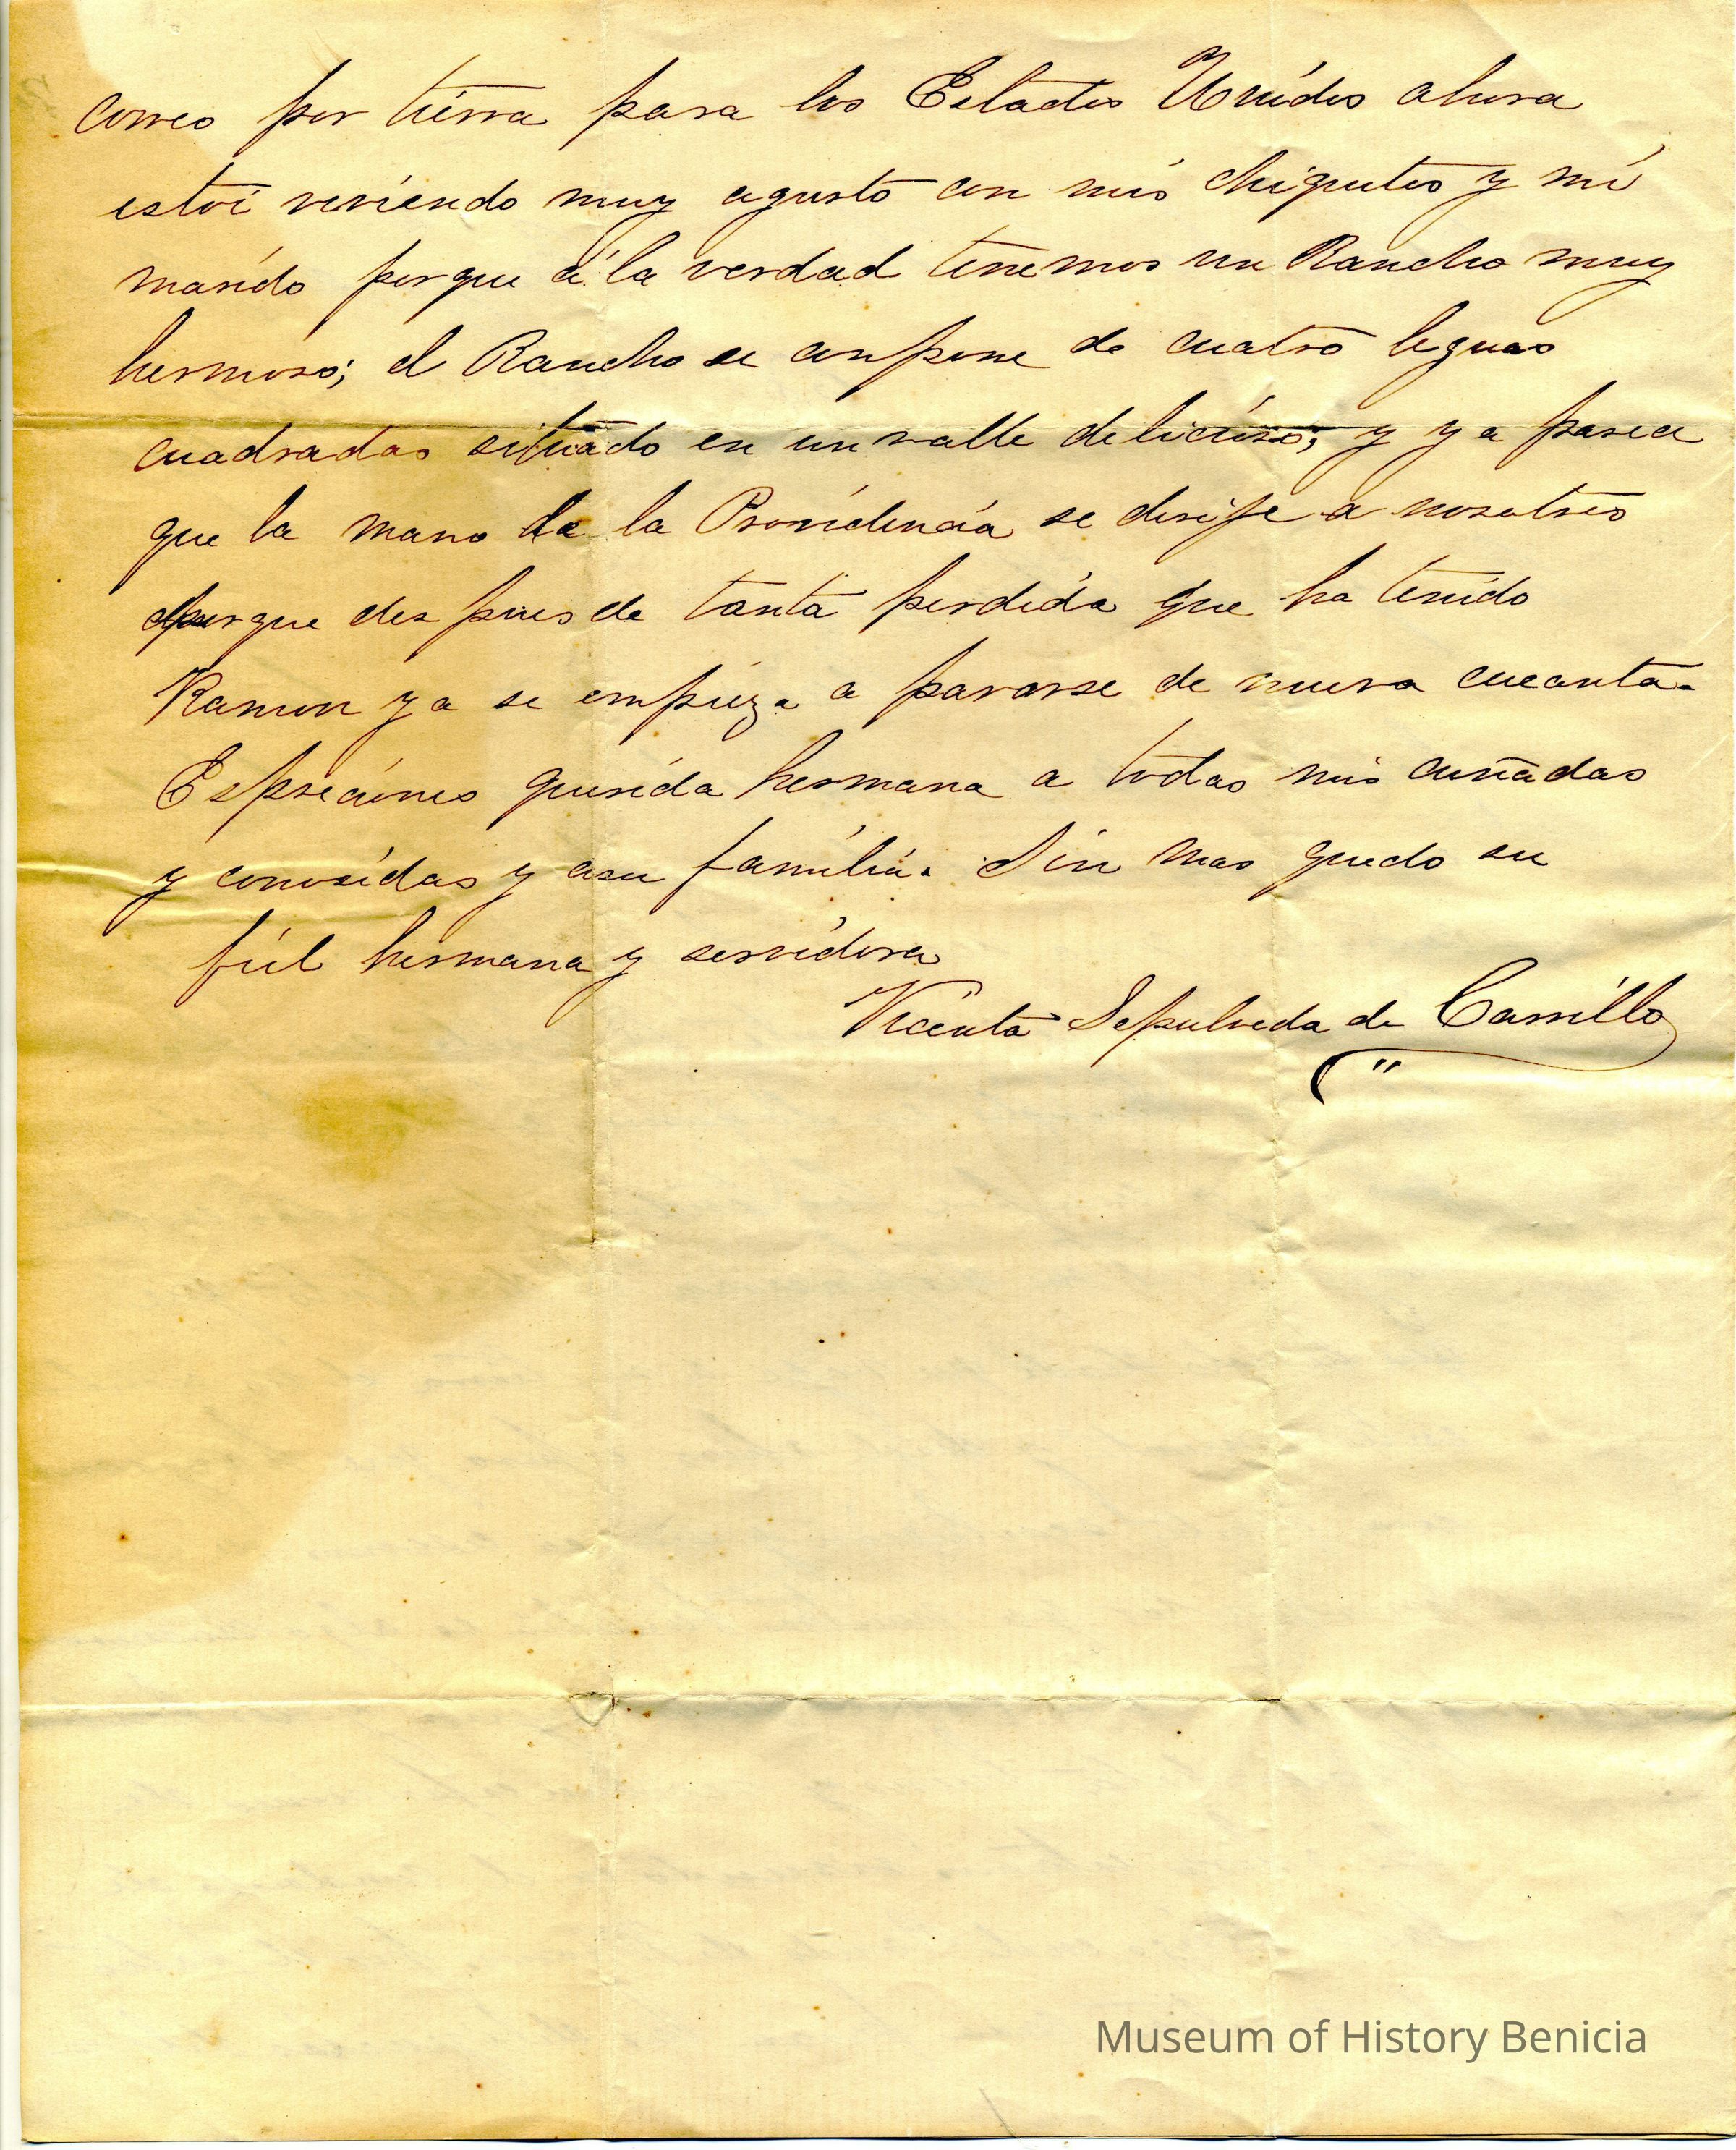 correo por tierra para los Estados Unidos ahora
estoi viviendo muy agusto con mis chiquitos y mi
marido porque á la verdad tenemos un Rancho muy
hermoso; el Rancho se conpone de cuatro leguas
cuadradas situado en un valle delicioso; y ya parece
que la mano de la Providencia se dirije a nosotros
porque despues de tanta perdida que ha tenido
Ramon ya se empieza a pararse de nueva cuenta.
Espreciones querida hermana a todas mis cuñadas
y conosidas y asu familia. Sin mas quedo su
fiel hermana y servidora
Vicenta Sepulveda de Carrillo
Museum of History Benicia